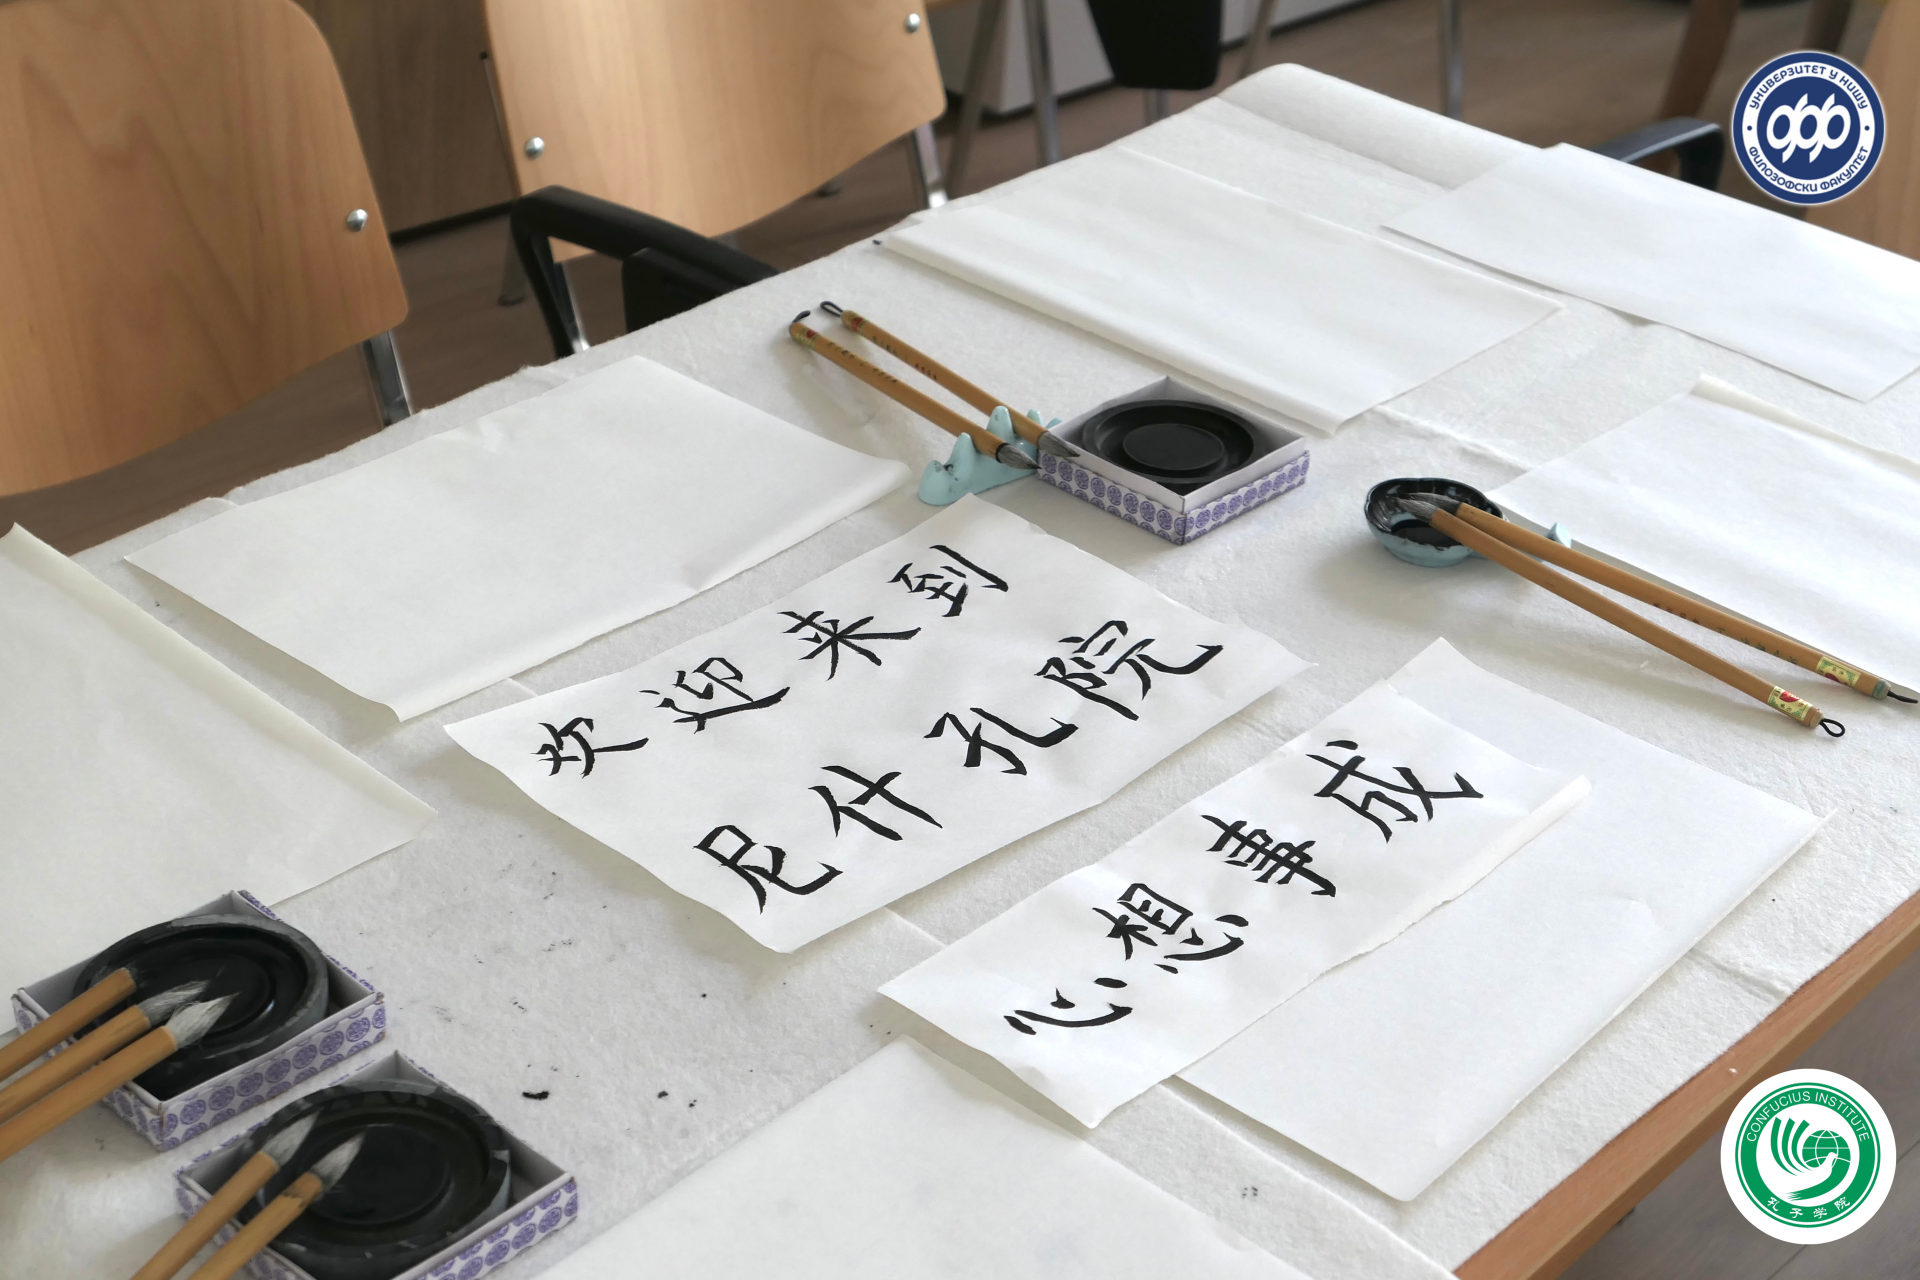 欢迎来到
尼什孔院
心想事成
УНИВЕРЗИТЕТ У НИШУ
ФИЛОЗОФСКИ ФАКУЛТЕТ
CONFUCIUS INSTITUTE
孔子学院